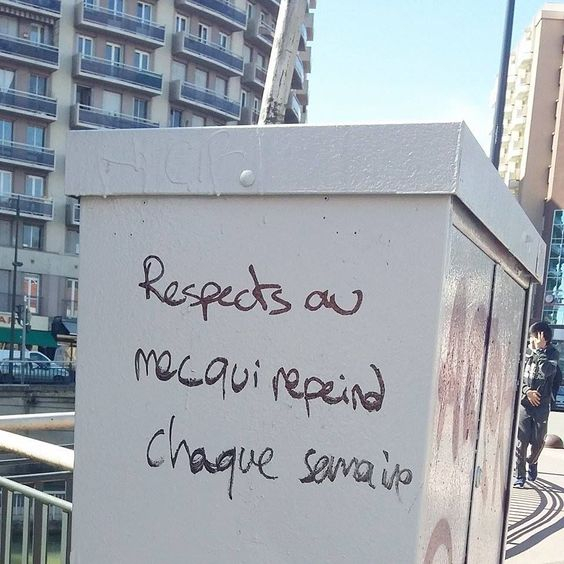 Respects au
mec qui repeind
chaque semaine